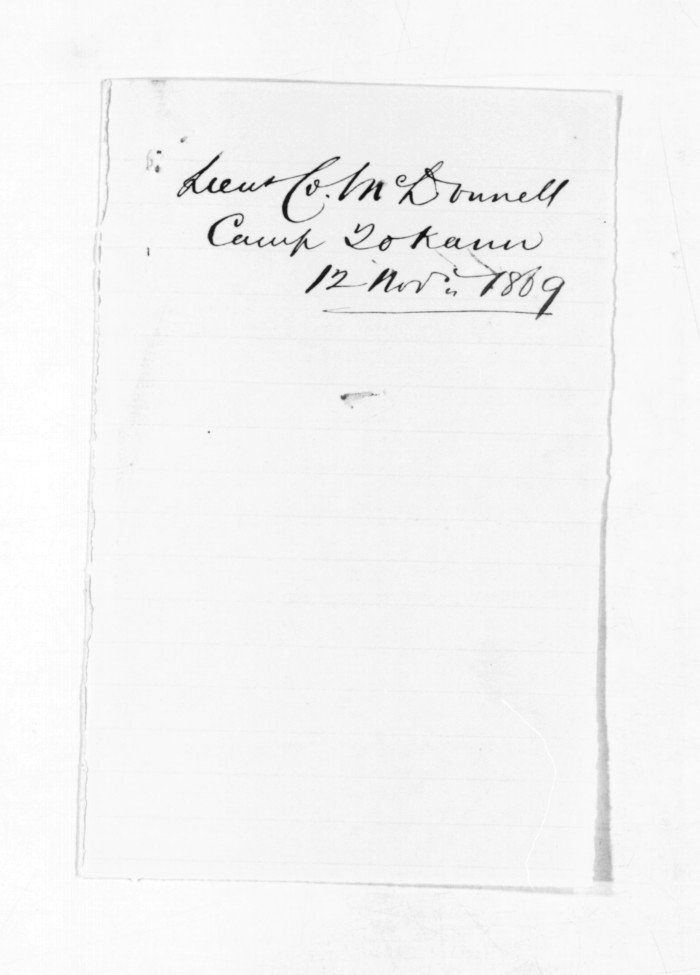 Lieut Co. McDonnell
Camp Tokanu
12 Nov. 1869